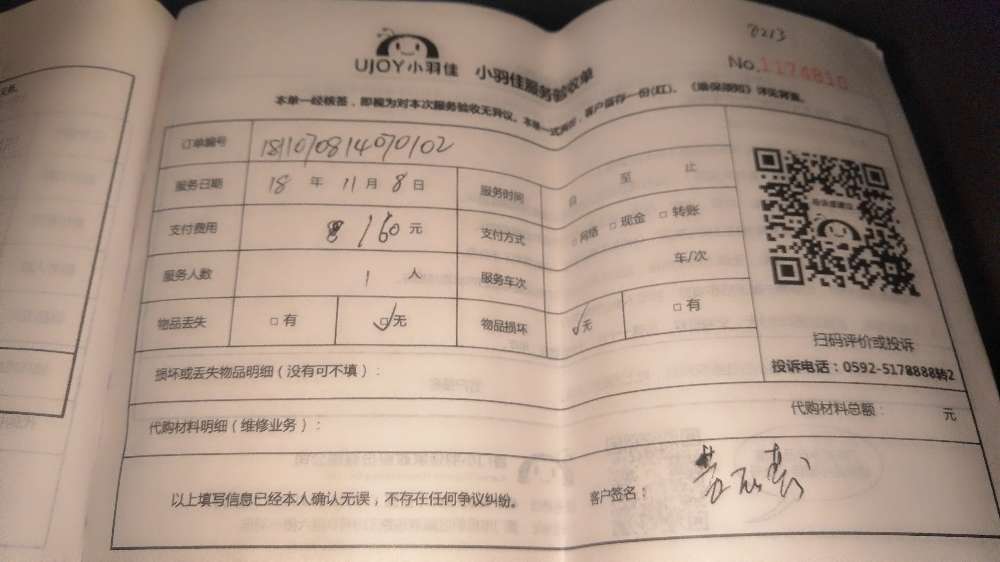 8213
UJOY小羽佳 小羽佳服务验收单
No.1174816
本单一经核签，即视为对本次服务验收无异议。本单一式两份，客户留存一份(红)。《维保须知》详见背面。
订单编号 1811070814070102
服务日期 18 年 11 月 8 日 服务时间 自 至 止
支付费用 160 元 支付方式 □网络 □现金 □转账
服务人数 1 人 服务车次 车/次
物品丢失 □有 ☑无 物品损坏 ✓无 □有
扫码评价或投诉
投诉电话：0592-5178888转2
损坏或丢失物品明细（没有可不填）：
代购材料明细（维修业务）： 代购材料总额： 元
以上填写信息已经本人确认无误，不存在任何争议纠纷。 客户签名：